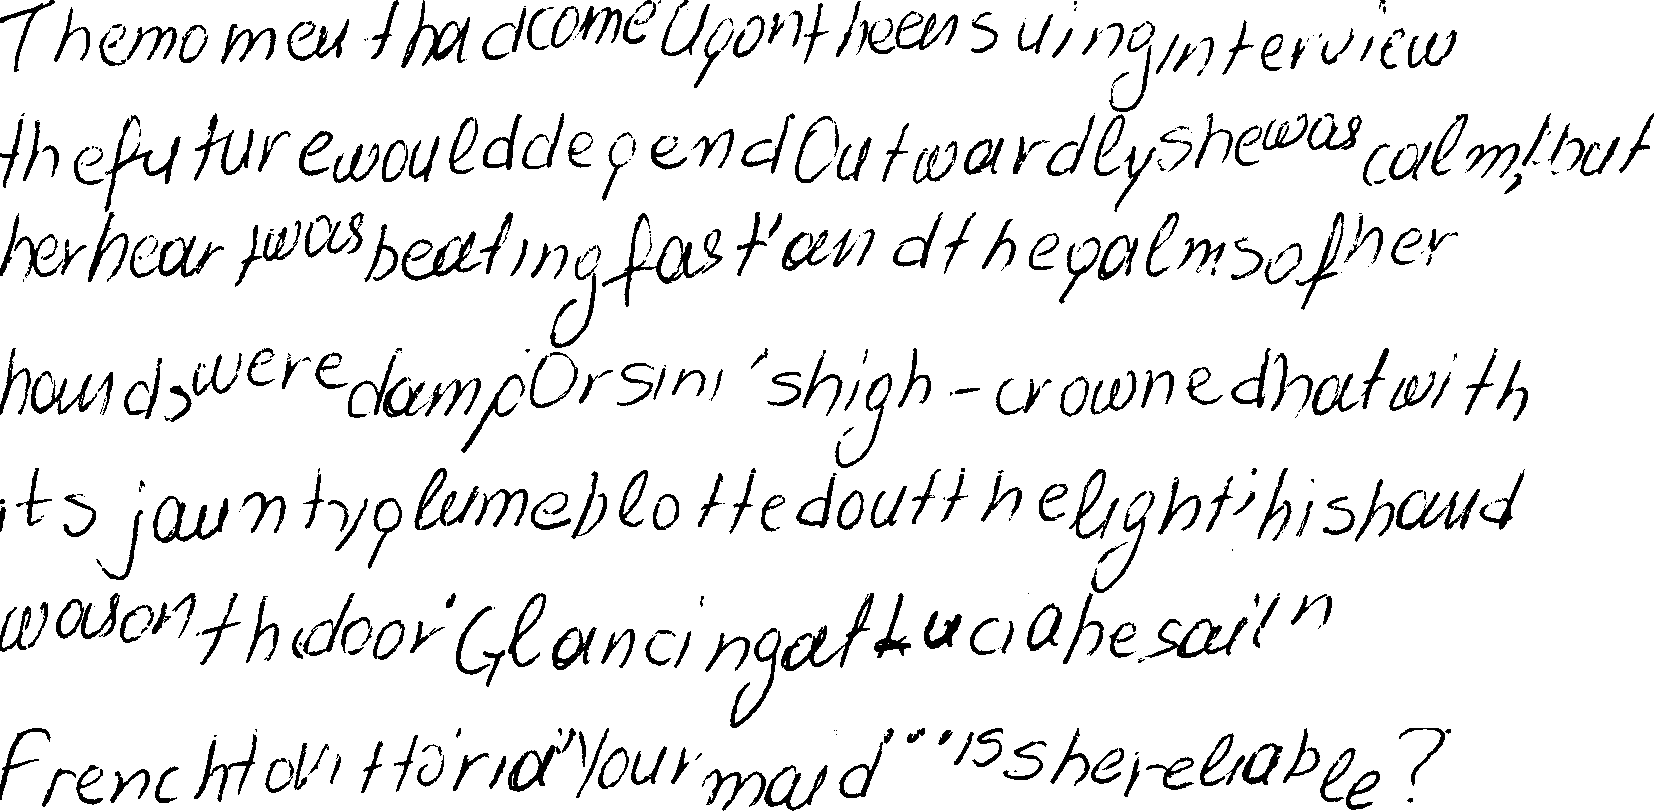 The moment had come Upon the ensuing interview
the future would depend Outwardly she was calm, but
her heart was beating fast' and the palms of her
hands were damp Orsini's high-crowned hat with
its jaunty plume blotted out the light' his hand
was on the door. Glancing at Lucia he said in
French to Vittoria" Your maid ... is she reliable?